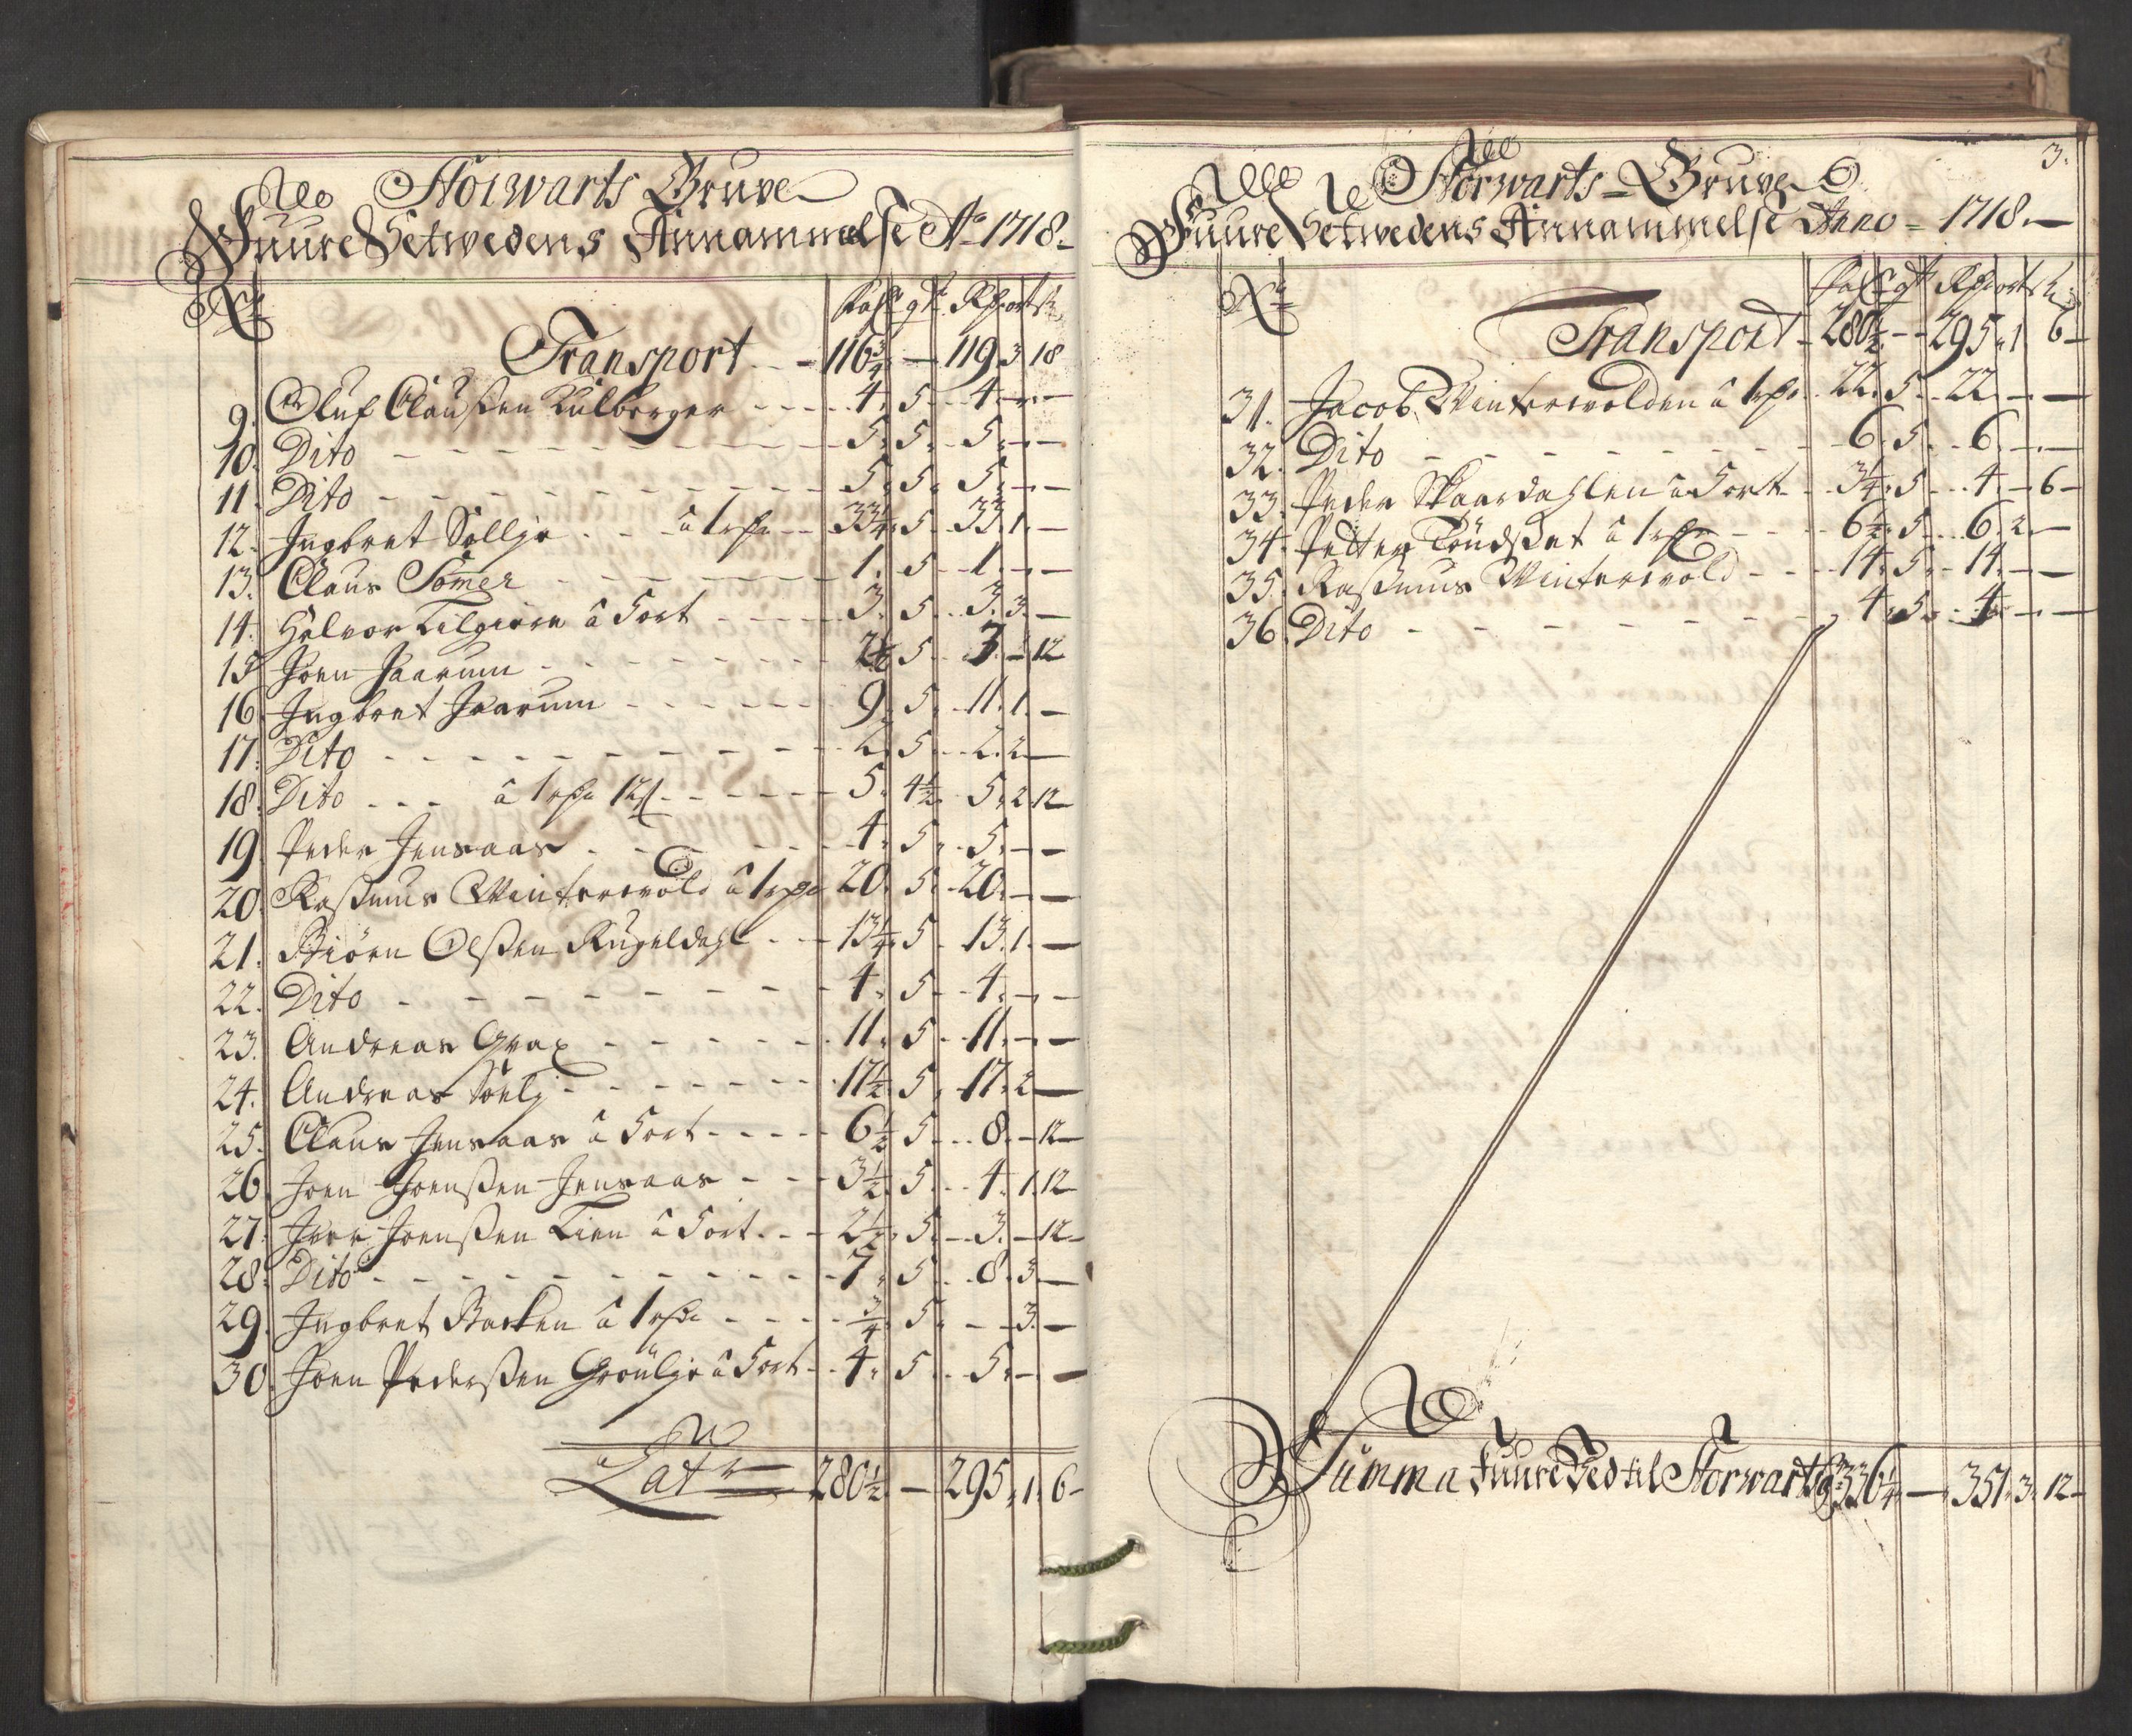 Storwarts Gruve
Fuure Setvedens Annammelse Ao 1718
No
Transport - 116 3/4 - 119 3 18
9. Oluf Claußen Külberger - - - 4. 5. 4. - -
10. Dito - - - 5. 5. 5. - -
11. Dito - - - 5. 5. 5. - -
12. Ingbret Sollje - - â 1 rdr - 33 1/4 5. 33. 1. -
13. Claus Sömer - - - 1. 5. 1. - -
14. Halvor Tilgiorn â 5 ort - - - 3. 5. 3. 3. -
15. Joen Haarum - - - 2 1/2 5. 3. - 12
16. Ingbret Haarum - - - 9. 5. 11. 1. -
17. Dito - - - 2. 5. 2. 2 -
18. Dito - - - â 1 rdr 12 s - - - 5. 4 1/2 5. 2. 12
19. Peder Jensaas - - - 4. 5. 5. - -
20. Raßmus Wintervold â 1 rdr 20. 5. 20. - -
21. Biörn Olßen Rugeldahl - - 13 1/4 5. 13. 1. -
22. Dito - - - 4. 5. 4. - -
23. Andreas Grax - - - 11. 5. 11. - -
24. Andreas Soelj - - - 17 1/2 5. 17. 2 -
25. Claus Jensaas â 5 ort - - - 6 1/2 5. 8. - 12
26. Joen Joenßen Jensaas - - - 3 1/2 5. 4. 1. 12
27. Iver Joenßen Lien â 5 ort - - 2 1/2 5. 3. - 12
28. Dito - - - 7. 5. 8. 3. -
29. Ingbret Backen â 1 rdr - - - 3/4 5. - 3. -
30. Joen Pederßen Groülje â 5 ort - 4. 5. 5. - -
Lats 280 1/2 - 295. 1. 6 -
3.
Storwarts - Gruve
Fuure Setvedens Annammelse Anno - 1718. -
No
Transport - 280 1/2 - - 295. 1 6 -
31. Jacob Wintervolden â 1 rdr - 22. 5. 22. - -
32. Dito - - - 6. 5. 6. - -
33. Peder Skaardahlen â 5 ort - 3 1/4 5. 4. - 6 -
34. Petter Töndset â 1 rdr - - 6 1/2 5. 6. 2. -
35. Raßmus Wintervold - - 14. 5. 14. - -
36. Dito - - - 4. 5. 4. - -
Summa Fuure Ved til Storwarts 336 1/4 - 351. 3. 12 -